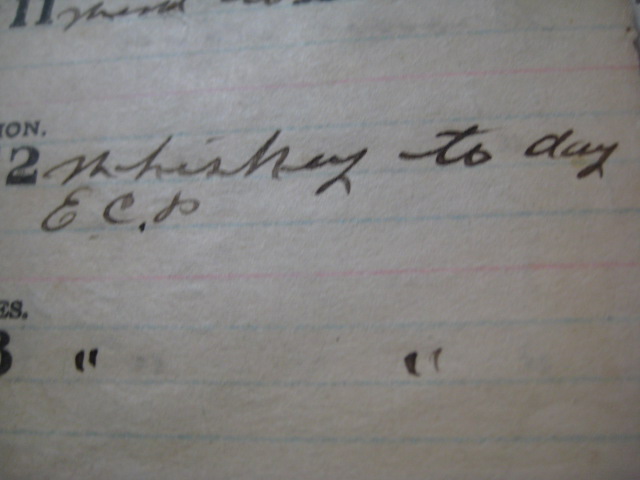 11
MON.
12 Whiskey to day
E C. P
ES.
3 " "